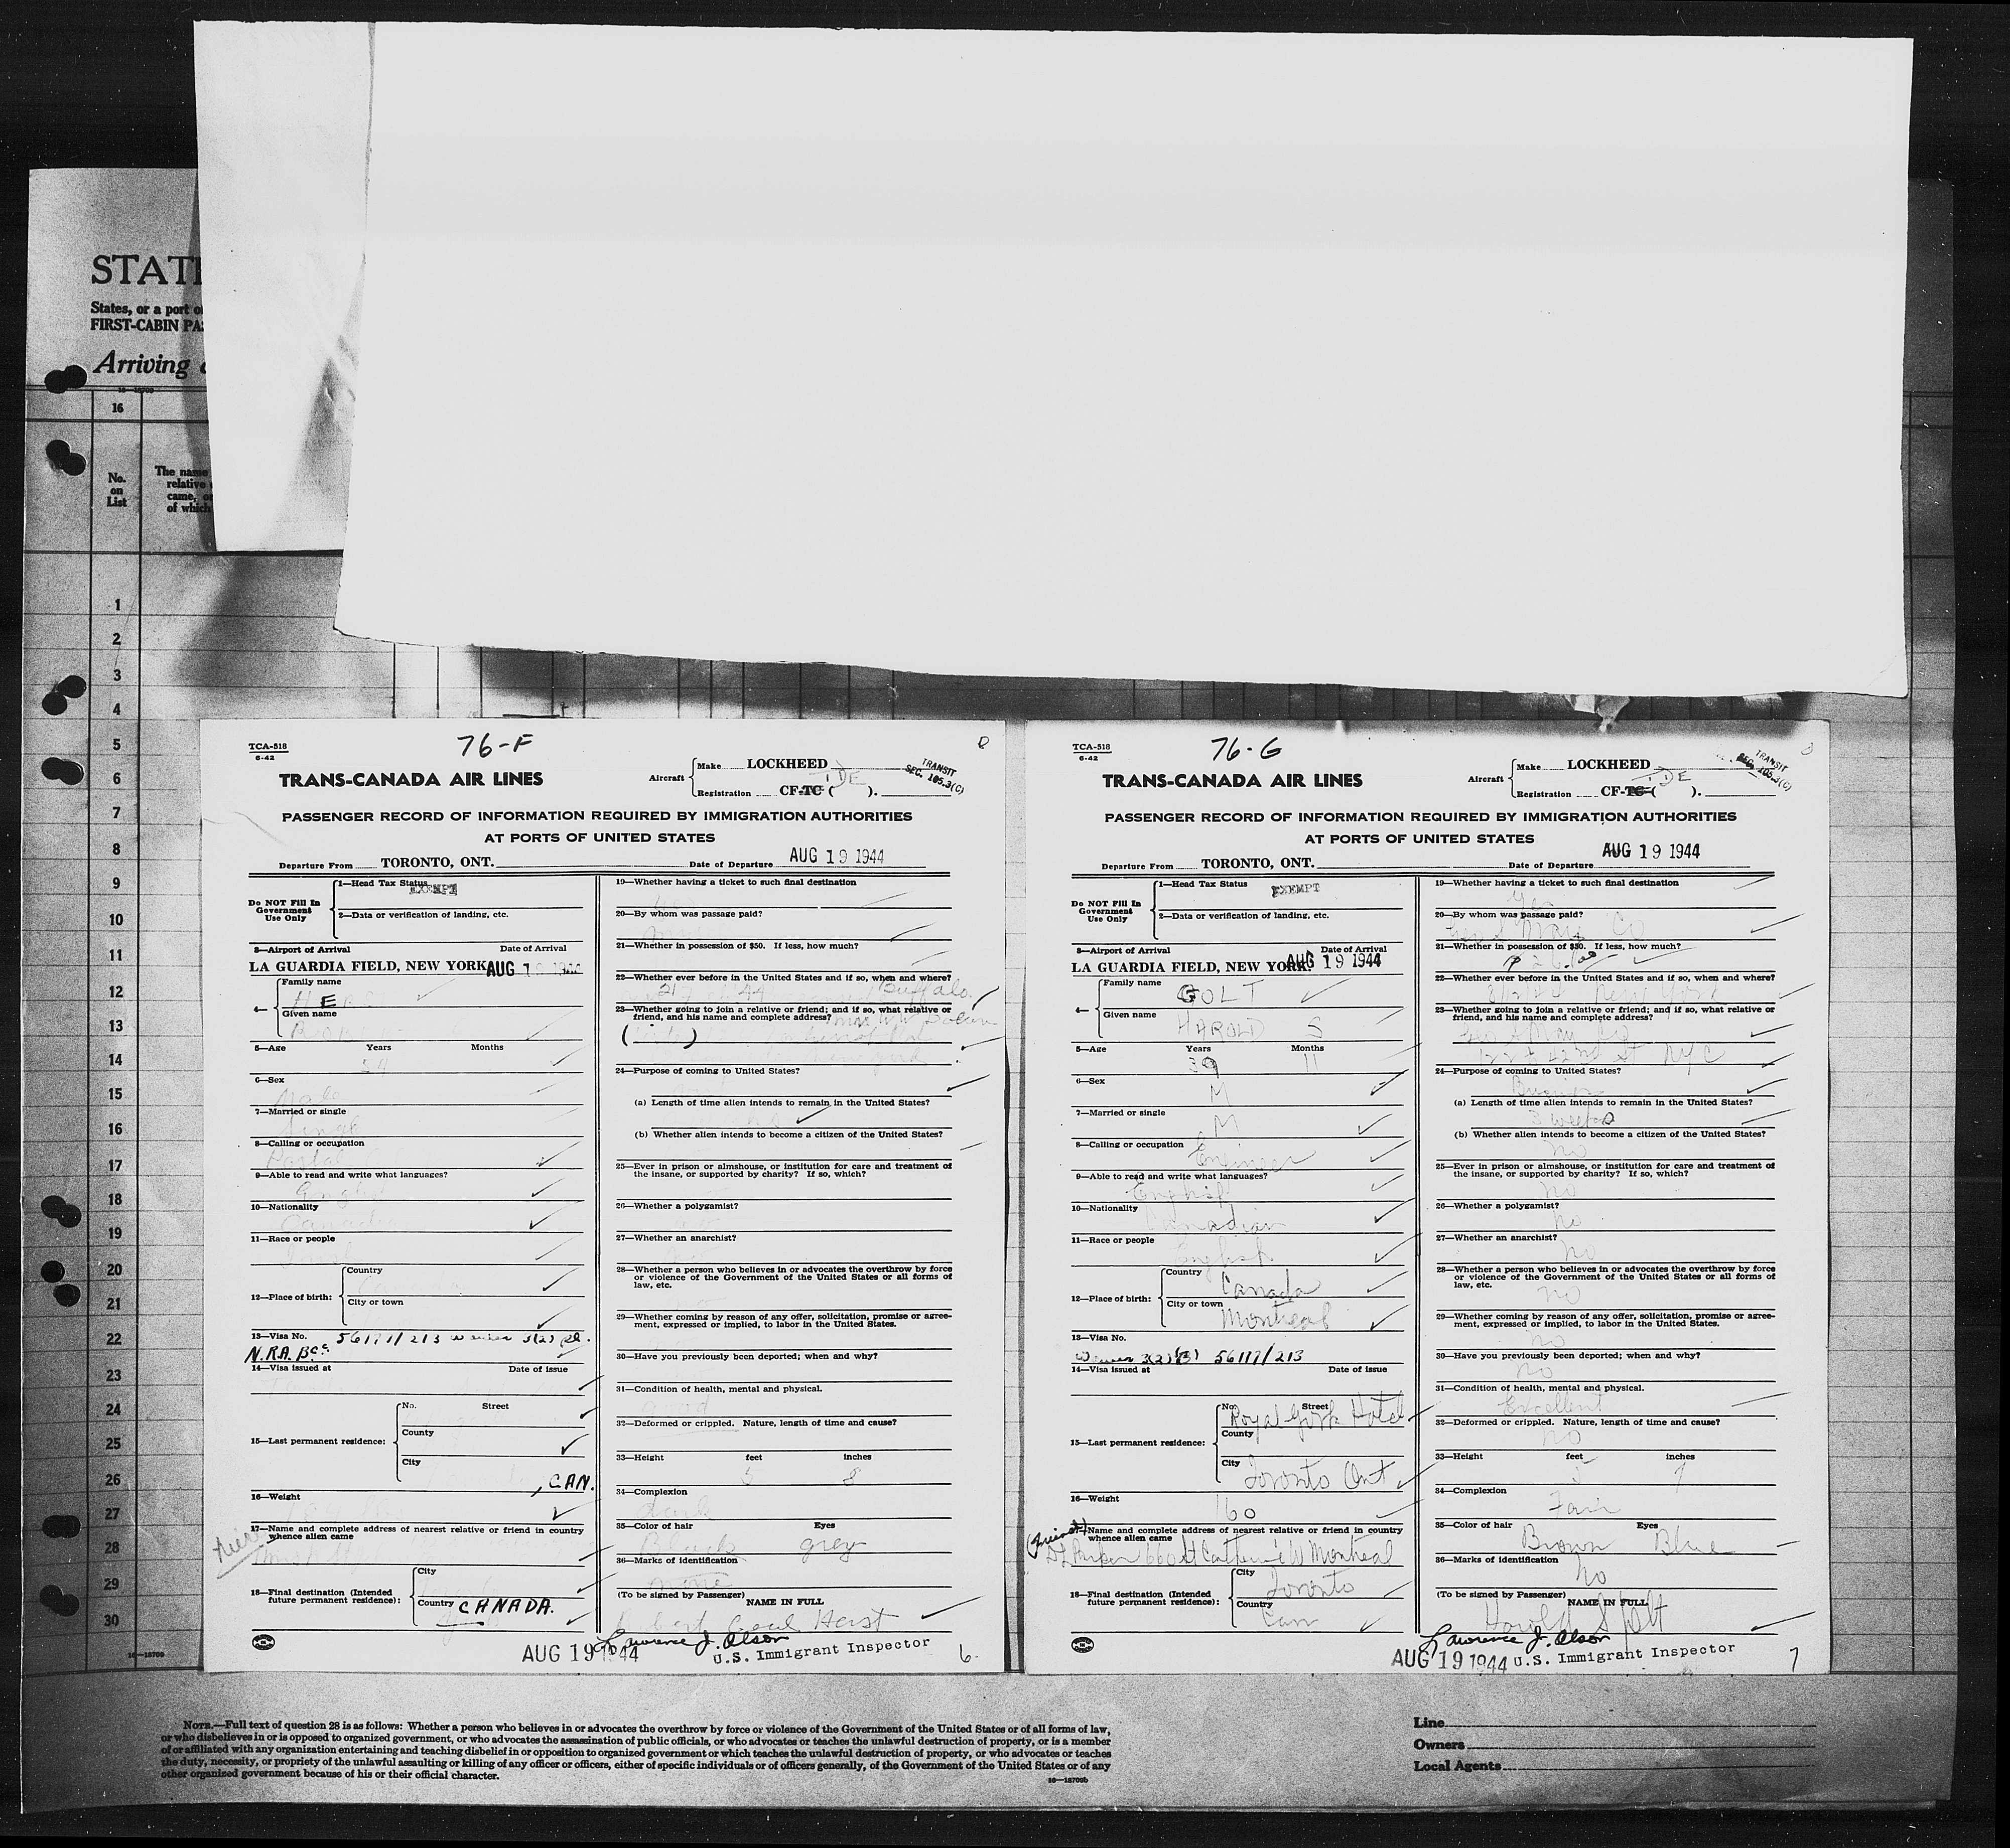 STATE
States, or a port of
FIRST-CABIN PAS
Arriving a
16-18709
16
No.
on
List
The name
relative
came, or
of which
1
2
3
4
5
6
7
8
9
10
11
12
13
14
15
16
17
18
19
20
21
22
23
24
25
26
27
28
29
30
16-18709
TCA-518
6-42
76-F
TRANS-CANADA AIR LINES
Aircraft
Make LOCKHEED
Registration CF-TC ( DE ).
TRANSIT
SEC. 105.3(C)
PASSENGER RECORD OF INFORMATION REQUIRED BY IMMIGRATION AUTHORITIES
AT PORTS OF UNITED STATES
Departure From TORONTO, ONT. Date of Departure AUG 19 1944
Do NOT Fill In
Government
Use Only
1—Head Tax Status EXEMPT
2—Data or verification of landing, etc.
3—Airport of Arrival Date of Arrival
LA GUARDIA FIELD, NEW YORK AUG 19 1944
4—
Family name
Given name
5—Age Years Months
6—Sex
Male
7—Married or single
Single
8—Calling or occupation
9—Able to read and write what languages?
English
10—Nationality
Canadian
11—Race or people
12—Place of birth:
Country
City or town
13—Visa No. 56171/213 Waiver 3(2)
N.R.A.
14—Visa issued at Date of issue
15—Last permanent residence:
No. Street
County
City
, CAN.
16—Weight
17—Name and complete address of nearest relative or friend in country
whence alien came
18—Final destination (Intended
future permanent residence):
City
Country CANADA.
19—Whether having a ticket to such final destination
20—By whom was passage paid?
21—Whether in possession of $50. If less, how much?
22—Whether ever before in the United States and if so, when and where?
44 Buffalo
23—Whether going to join a relative or friend; and if so, what relative or
friend, and his name and complete address?
24—Purpose of coming to United States?
(a) Length of time alien intends to remain in the United States?
(b) Whether alien intends to become a citizen of the United States?
25—Ever in prison or almshouse, or institution for care and treatment of
the insane, or supported by charity? If so, which?
26—Whether a polygamist?
27—Whether an anarchist?
28—Whether a person who believes in or advocates the overthrow by force
or violence of the Government of the United States or all forms of
law, etc.
29—Whether coming by reason of any offer, solicitation, promise or agree-
ment, expressed or implied, to labor in the United States.
30—Have you previously been deported; when and why?
31—Condition of health, mental and physical.
good
32—Deformed or crippled. Nature, length of time and cause?
33—Height feet inches
5 8
34—Complexion
dark
35—Color of hair Eyes
Black grey
36—Marks of identification
none
(To be signed by Passenger)
NAME IN FULL
Herst
Lawrence J. Olson
AUG 19 1944 U.S. Immigrant Inspector 6.
TCA-518
6-42
76-G
TRANS-CANADA AIR LINES
Aircraft
Make LOCKHEED
Registration CF-TC ( DE ).
TRANSIT
SEC. 105.3(C)
PASSENGER RECORD OF INFORMATION REQUIRED BY IMMIGRATION AUTHORITIES
AT PORTS OF UNITED STATES
Departure From TORONTO, ONT. Date of Departure AUG 19 1944
Do NOT Fill In
Government
Use Only
1—Head Tax Status EXEMPT
2—Data or verification of landing, etc.
3—Airport of Arrival Date of Arrival
LA GUARDIA FIELD, NEW YORK. AUG 19 1944
4—
Family name
Given name
HAROLD S
5—Age Years Months
39 11
6—Sex
M
7—Married or single
M
8—Calling or occupation
Engineer
9—Able to read and write what languages?
English
10—Nationality
Canadian
11—Race or people
English
12—Place of birth:
Country
Canada
City or town
Montreal
13—Visa No.
Waiver 3(2)(B) 56117/213
14—Visa issued at Date of issue
15—Last permanent residence:
No. Street
Royal York Hotel
County
City
Toronto Ont
16—Weight
160
(friend)
17—Name and complete address of nearest relative or friend in country
whence alien came
Parker 660 St Catherine W Montreal
18—Final destination (Intended
future permanent residence):
City
Toronto
Country
Can
19—Whether having a ticket to such final destination
Yes
20—By whom was passage paid?
Co
21—Whether in possession of $50. If less, how much?
22—Whether ever before in the United States and if so, when and where?
New York
23—Whether going to join a relative or friend; and if so, what relative or
friend, and his name and complete address?
42nd St NYC
24—Purpose of coming to United States?
Business
(a) Length of time alien intends to remain in the United States?
3 weeks
(b) Whether alien intends to become a citizen of the United States?
No
25—Ever in prison or almshouse, or institution for care and treatment of
the insane, or supported by charity? If so, which?
No
26—Whether a polygamist?
No
27—Whether an anarchist?
No
28—Whether a person who believes in or advocates the overthrow by force
or violence of the Government of the United States or all forms of
law, etc.
No
29—Whether coming by reason of any offer, solicitation, promise or agree-
ment, expressed or implied, to labor in the United States.
No
30—Have you previously been deported; when and why?
No
31—Condition of health, mental and physical.
Excellent
32—Deformed or crippled. Nature, length of time and cause?
No
33—Height feet inches
5 9
34—Complexion
Fair
35—Color of hair Eyes
Brown Blue
36—Marks of identification
No
(To be signed by Passenger)
NAME IN FULL
Harold S
Lawrence J. Olson
AUG 19 1944 U.S. Immigrant Inspector 7
NOTE.—Full text of question 28 is as follows: Whether a person who believes in or advocates the overthrow by force or violence of the Government of the United States or of all forms of law,
or who disbelieves in or is opposed to organized government, or who advocates the assassination of public officials, or who advocates or teaches the unlawful destruction of property, or is a member
of or affiliated with any organization entertaining and teaching disbelief in or opposition to organized government or which teaches the unlawful destruction of property, or who advocates or teaches
the duty, necessity, or propriety of the unlawful assaulting or killing of any officer or officers, either of specific individuals or of officers generally, of the Government of the United States or of any
other organized government because of his or their official character.
16—18709b
Line
Owners
Local Agents